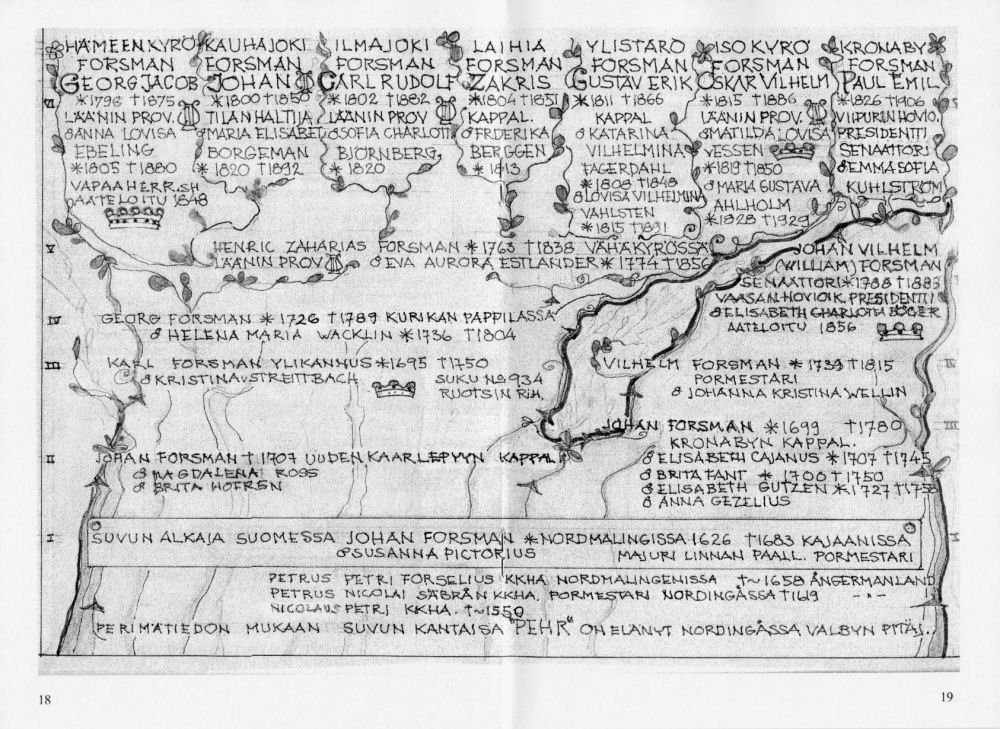 HÄMEENKYRÖ
FORSMAN
GEORG JACOB
*1796 †1875
LÄÄNIN PROV.
⚭ANNA LOVISA
EBELING
*1805 †1880
VAPAAHERR.SH
AATELOITU 1848
KAUHAJOKI
FORSMAN
JOHAN
*1800 †1850
TILANHALTIJA
⚭MARIA ELISABET
BORGEMAN
*1820 †1892
ILMAJOKI
FORSMAN
CARL RUDOLF
*1802 †1882
LÄÄNIN PROV
⚭SOFIA CHARLOTTA
BJÖRNBERG
*1820
LAIHIA
FORSMAN
ZAKRIS
*1804 †1851
KAPPAL.
⚭FREDERIKA
BERGGEN
*1813
YLISTARO
FORSMAN
GUSTAV ERIK
*1811 †1866
KAPPAL
⚭KATARINA
VILHELMINA
FAGERDAHL
*1808 †1848
⚭LOVISA VILHELMINA
VAHLSTEN
*1815 †1891
ISO KYRÖ
FORSMAN
OSKAR VILHELM
*1815 †1886
LÄÄNIN PROV.
⚭MATILDA LOVISA
YESSEN
*1819 †1850
⚭MARIA GUSTAVA
AHLHOLM
*1828 †1929
KRONABY
FORSMAN
PAUL EMIL
*1826 †1906
VIIPURIN HOVIO.
PRESIDENTTI
SENAATTORI
⚭EMMA SOFIA
KUHLSTRÖM
V
HENRIC ZAHARIAS FORSMAN *1763 †1838 VÄHÄKYRÖSSÄ
LÄÄNIN PROV ⚭EVA AURORA ESTLANDER *1774 †1856
JOHAN VILHELM
(WILLIAM) FORSMAN
SENAATTORI *1788 †1883
VAASAN HOVIOIK. PRESIDENTTI
⚭ELISABETH CHARLOTTA BÖGER
AATELOITU 1856
IV
GEORG FORSMAN *1726 †1789 KURIKAN PAPPILASSA
⚭HELENA MARIA WACKLIN *1736 †1804
III
KARL FORSMAN YLIKANNUS *1695 †1750
⚭KRISTINA v STREITTBACH
SUKU No 934
RUOTSIN RIH.
VILHELM FORSMAN *1739 †1815
PORMESTARI
⚭JOHANNA KRISTINA WELLIN
JOHAN FORSMAN *1699 †1780
KRONABYN KAPPAL.
⚭ELISABETH CAJANUS *1707 †1745
⚭BRITA FANT *1700 †1750
⚭ELISABETH GUTZEN *1727 †1758
⚭ANNA GEZELIUS
III
II
JOHAN FORSMAN †1707 UUDENKAARLEPYYN KAPPAL
⚭MAGDALENA ROSS
⚭BRITA HOFREN
I
SUVUN ALKAJA SUOMESSA JOHAN FORSMAN *NORDMALINGISSA 1626 †1683 KAJAANISSA
⚭SUSANNA PICTORIUS MAJURI LINNAN PÄÄLL. PORMESTARI
PETRUS PETRI FORSELIUS KKHA NORDMALINGENISSA †~1658 ÅNGERMANLAND
PETRUS NICOLAI SÄBRÅN KKHA. PORMESTARI NORDINGÅSSA †1619 -"-
NICOLAUS PETRI KKHA. †~1550
PERIMÄTIEDON MUKAAN SUVUN KANTAISÄ "PEHR" ON ELÄNYT NORDINGÅSSA, VALBYN PITÄJ..
18
19